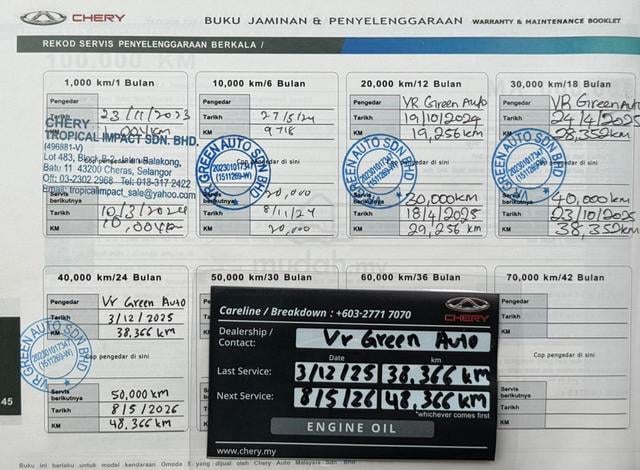 CHERY
BUKU JAMINAN & PENYELENGGARAAN WARRANTY & MAINTENANCE BOOKLET
REKOD SERVIS PENYELENGGARAAN BERKALA /
1,000 km/1 Bulan
Pengedar
Tarikh 23/11/2023
KM
CHERY
TROPICAL IMPACT SDN. BHD.
(496881-V)
Lot 483, Block B-2, Jalan Balakong,
Batu 11 43200 Cheras, Selangor
Off: 03-2302 2968 Tel: 018-317 2422
Email: tropicalimpact_sale@yahoo.com
Tarikh 10/3/2024
KM 10,004km
10,000 km/6 Bulan
Pengedar
Tarikh 27/5/24
KM 9718
Cop pengedar di sini
VR GREEN AUTO SDN BHD
202301017347
(1511269-W)
Servis berikutnya 20,000
Tarikh 8/11/24
KM 20,000
20,000 km/12 Bulan
Pengedar VR Green Auto
Tarikh 19/10/2024
KM 19,256km
Cop pengedar di sini
VR GREEN AUTO SDN BHD
202301017347
(1511269-W)
Servis berikutnya 30,000km
Tarikh 18/4/2025
KM 29,256 km
30,000 km/18 Bulan
Pengedar VR Green Auto
Tarikh 24/4/2025
KM 28,352km
Cop pengedar di sini
VR GREEN AUTO SDN BHD
202301017347
(1511269-W)
Servis berikutnya 40,000km
Tarikh 23/10/2025
KM 38,352km
40,000 km/24 Bulan
Pengedar Vr Green Auto
Tarikh 3/12/2025
KM 38,366 km
Cop pengedar di sini
VR GREEN AUTO SDN BHD
202301017347
(1511269-W)
Servis berikutnya 50,000km
Tarikh 8/5/2026
KM 48,366 km
50,000 km/30 Bulan
60,000 km/36 Bulan
70,000 km/42 Bulan
mudah.my
Careline / Breakdown : +603-2771 7070
CHERY
Dealership / Contact: Vr Green Auto
Date km
Last Service: 3/12/25 38,366 km
Next Service: 8/5/26 48,366 km
*whichever comes first
ENGINE OIL
www.chery.my
45
Buku ini berlaku untuk model kendaraan Omoda 5 yang dijual oleh Chery Auto Malaysia Sdn Bhd